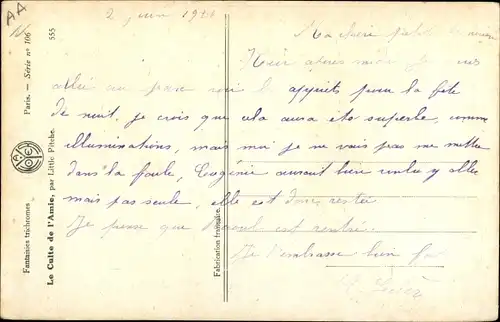 AA
2 juin 1921
Ma chère petite
Hier après midi je
allée au voir les apprêts pour la fête
de nuit, je crois que cela aura été superbe, comme
illuminations, mais moi je ne vais pas me mettre
dans la foule, Eugénie aurait bien voulu y aller
mais pas seule, elle est donc restée
Je pense que est rentrée
Je t'embrasse bien fort
Fantaisies trichromes
Le Culte de l'Amie, par Little Pitche.
Paris. — Série n° 106
555
Fabrication française.